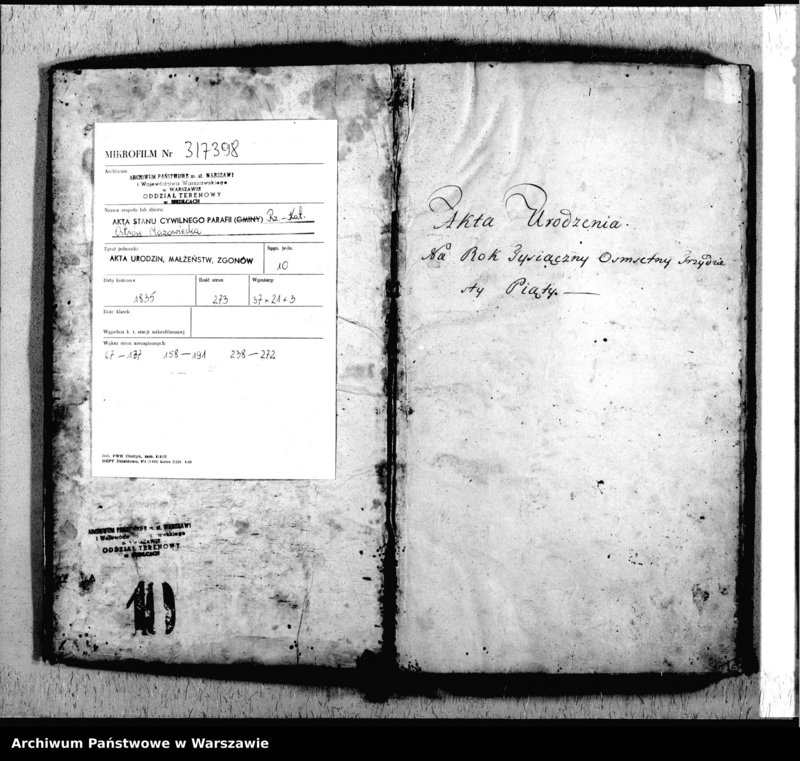 MIKROFILM Nr 317398
Archiwum
ARCHIWUM PAŃSTWOWE m. st. WARSZAWY
i Województwa Warszawskiego
w WARSZAWIE
ODDZIAŁ TERENOWY
w SIEDLCACH
Nazwa zespołu lub zbioru:
AKTA STANU CYWILNEGO PARAFII (GMINY) Rz.-Kat.
Ostrów Mazowiecka
Tytuł jednostki:
AKTA URODZIN, MAŁŻEŃSTW, ZGONÓW
Sygn. jedn.
10
Daty końcowe
1835
Ilość stron
273
Wymiary
37×21×3
Ilość klatek
Wypełnia k. t. stacji mikrofilmowej
Wykaz stron niezapisanych:
67-137 158-191 238-272
ARCHIWUM PAŃSTWOWE m. st. WARSZAWY
ODDZIAŁ TERENOWY
w SIEDLCACH
10
Akta Urodzenia.
Na Rok Tysiączny Osmsetny Trzydzie
sty Piąty.
Archiwum Państwowe w Warszawie